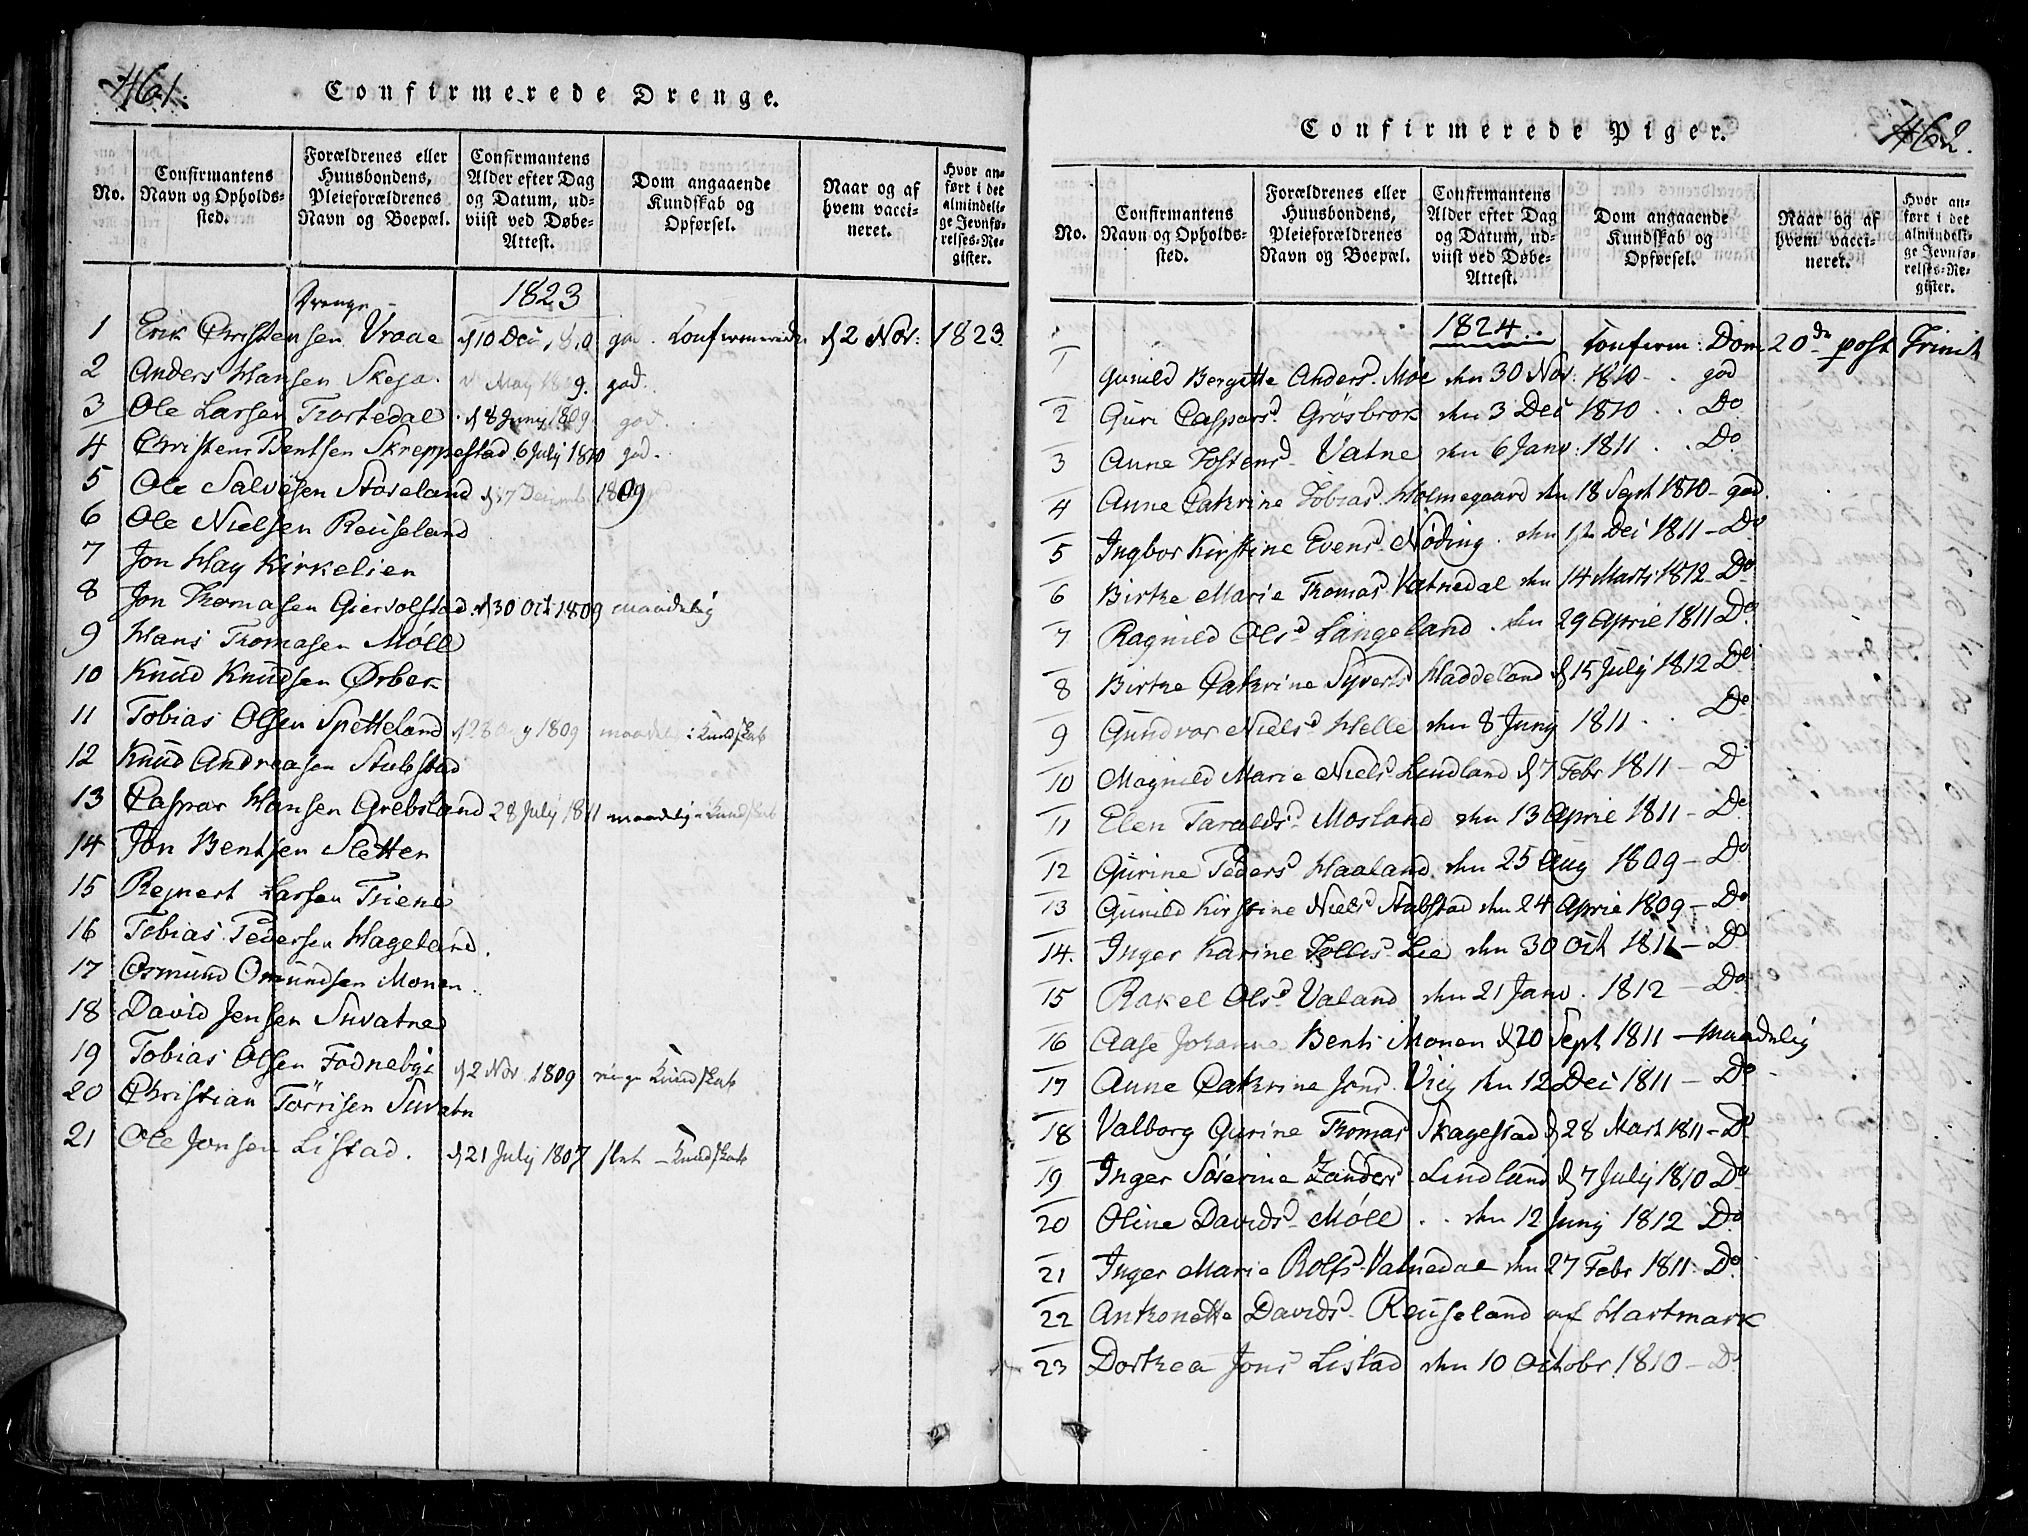 461.
Confirmerede Drenge.
No.
Confirmantens Navn og Opholds-sted.
Forældrenes eller Huusbondens, Pleieforældrenes Navn og Boepæl.
Confirmantens Alder efter Dag og Datum, ud-viist ved Døbe-Attest.
Dom angaaende Kundskab og Opførsel.
Naar og af hvem vacci-neret.
Hvor an-ført i det almindeli-ge Jevnfø-relses-Re-gister.
Drenge 1823
1 Erik Christensen Vraae d 10 Dec 1810 god. Konfirmerede d 2 Nov: 1823
2 Anders Hansen May 1809. god.
3 Ole Larsen Trortedal d 8 Junij 1809 god.
4 Christen Bentsen Skreppestad 6 July 1810 god.
5 Ole Salvesen Støseland d 17 Decemb 1809
6 Ole Nielsen Reuseland
7 Jon Hay Kirkelien
8 Jon Thomasen Giervolstad. d 30 Oct 1809 maadelig
9 Hans Thomasen Møll
10 Knud Knudsen Ørbek
11 Tobias Olsen Spetteland d 28 Aug 1809 maadel i Kundskab
12 Knud Andreasen Stubstad
13 Caspar Hansen Grebsland 28 July 1811 maadelig i Kundskab
14 Jon Bentsen Sletten
15 Rejnert Larsen
16 Tobias Pedersen Hageland.
17 Osmund Omundsen Monen.
18 David Jensen Suvatne
19 Tobias Olsen Fodnebye d 2 Nov. 1809 ringe Kundskab
20 Christian Tørrisen Suvatn
21 Ole Jonsen Listad. d 21 July 1807 slet Kundskab
462.
Confirmerede Piger.
No.
Confirmantens Navn og Opholds-sted.
Forældrenes eller Huusbondens, Pleieforældrenes Navn og Boepæl.
Confirmantens Alder efter Dag og Datum, ud-viist ved Døbe-Attest.
Dom angaaende Kundskab og Opførsel.
Naar og af hvem vacci-neret.
Hvor an-ført i det almindeli-ge Jevnfø-relses-Re-gister.
1824. Konferm: Dom 20de post Trinit
1 Gunild Bergitte Anders. Moe den 30 Nov: 1810 . god
2 Guri Caspars Grøsbrok den 3 Dec 1810 . . Do
3 Anne Tostens Vatne den 6 Janv: 1811 . . Do
4 Anne Cathrine Tobias. Holmegaard den 18 Sept 1810 - god.
5 Ingbor Kirstine Evens Nøding. den 12 Dec 1811 - Do
6 Birthe Marie Thomas Vatnedal den 14 Marts 1812 Do
7 Ragnild Ols Langeland. den 29 April 1811 Do
8 Birthe Cathrine Syverts Haddeland d 15 July 1812 Do
9 Gundvor Niels Helle den 8 Junij 1811 . . Do
10 Magnild Marie Niels Lindland d 7 Febr 1811 - Do
11 Elen Taralds Mosland den 13 April 1811 - Do
12 Gurine Peders Haaland. den 25 Aug 1809 - Do
13 Gunild Kirstine Niels Stubstad den 24 April 1809 - Do
14. Inger Karine Tollis Lie den 30 Oct 1811 - Do
15 Rakel Ols Valand den 21 Janv. 1812 - Do
16 Aase Johanne Bents Monen d 20 Sept 1811 - Maadelig
17 Anne Cathrine Jons Viig den 12 Dec 1811 - Do
18 Valborg Gurine Thomas Skagestad d 28 Mart 1811 - Do
19 Inger Søserine Zanders Lindland d 7 July 1810 Do
20 Oline Davids Møll . . den 12 Junij 1812 Do
21 Inger Marie Rolfs Vatnedal den 27 Febr 1811: Do
22 Anthonette Davids Reuseland af Hartmark
23 Dorthea Jons Listad den 10 Octobr 1810 - Do